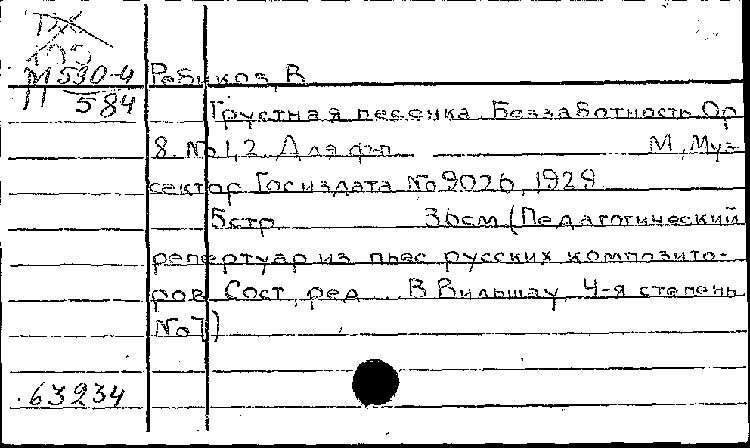 М 590-4
584
Ребиков, В
Грустная песенка. Беззаботность. Ор
8. №1,2. Для фп. М., Муз-
сектор Госиздата №9026, 1929
5стр. 36см (Педагогический
репертуар из пьес русских композито-
ров. Сост., ред. В Вильшау. 4-я степень
№7)
63234